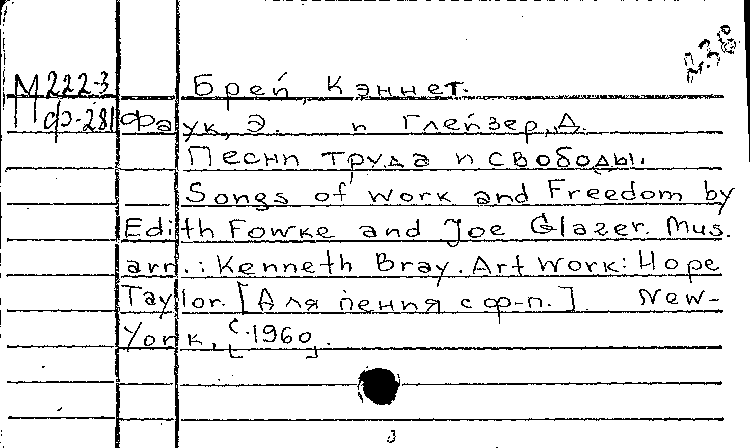 238
М222-3 Брей, Кэннет.
П ф-281 Фаук, Э. и Глейзер, Д.
Песни труда и свободы.
Songs of work and Freedom by
Edith Fowke and Joe Glazer. Mus.
arr.: Kenneth Bray. Art Work: Hope
Taylor. [Для пения с ф-п.] New-
York, [c.1960].